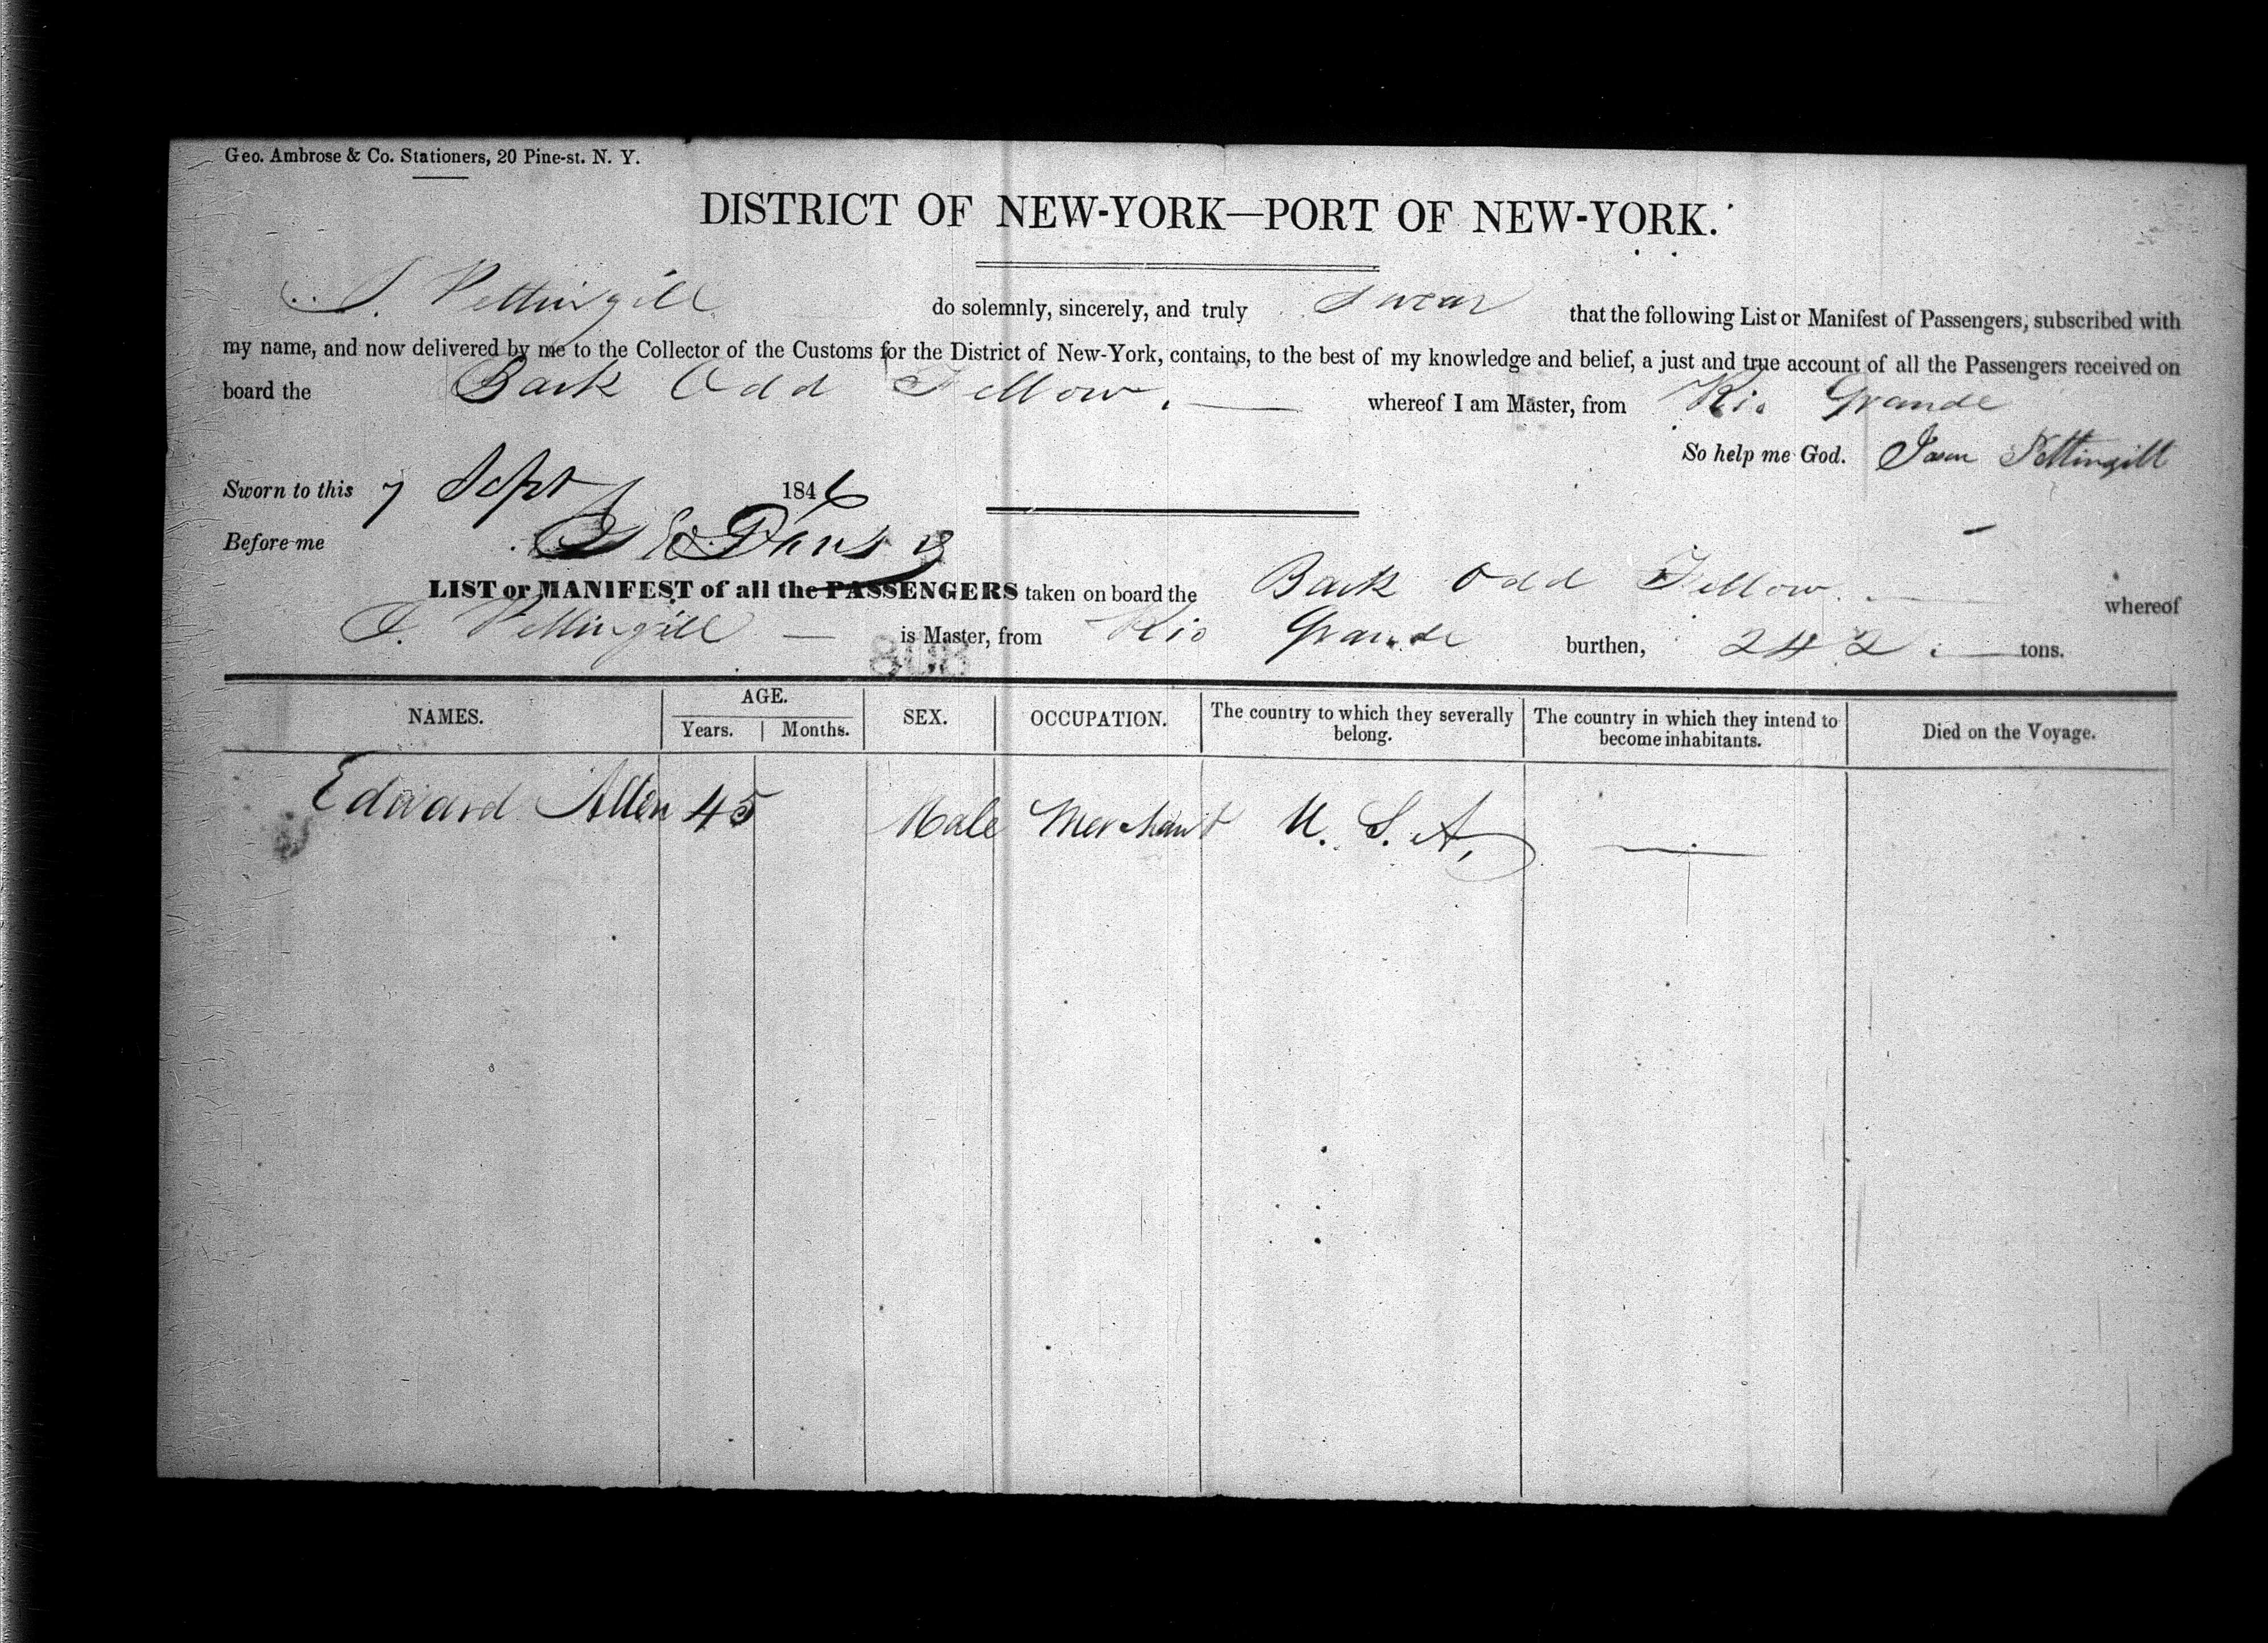 Geo. Ambrose & Co. Stationers, 20 Pine-st. N. Y.
DISTRICT OF NEW-YORK—PORT OF NEW-YORK.
Pettingill do solemnly, sincerely, and truly swear that the following List or Manifest of Passengers, subscribed with
my name, and now delivered by me to the Collector of the Customs for the District of New-York, contains, to the best of my knowledge and belief, a just and true account of all the Passengers received on
board the Bark Odd Fellow. whereof I am Master, from Rio Grande
So help me God. Pettingill
Sworn to this 7 Sept 1846
Before me
LIST or MANIFEST of all the PASSENGERS taken on board the Bark Odd Fellow. whereof
Pettingill is Master, from Rio Grande burthen, 242 tons.
NAMES. AGE. Years. Months. SEX. OCCUPATION. The country to which they severally belong. The country in which they intend to become inhabitants. Died on the Voyage.
Edward Allen 45 Male Merchant U. S. A.